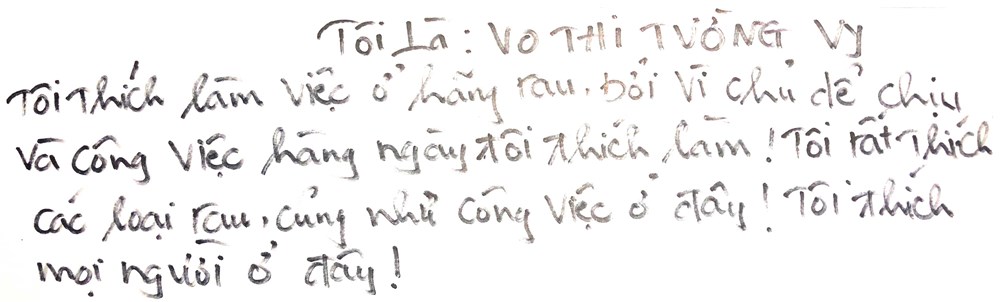 Tôi Là : VO THI TƯỜNG VY
Tôi thích làm việc ở hãng rau. bởi vì chủ dể chịu
và công việc hàng ngày tôi thích làm ! Tôi rất thích
các loại rau, củng như công việc ở đây ! Tôi thích
mọi người ở đây !